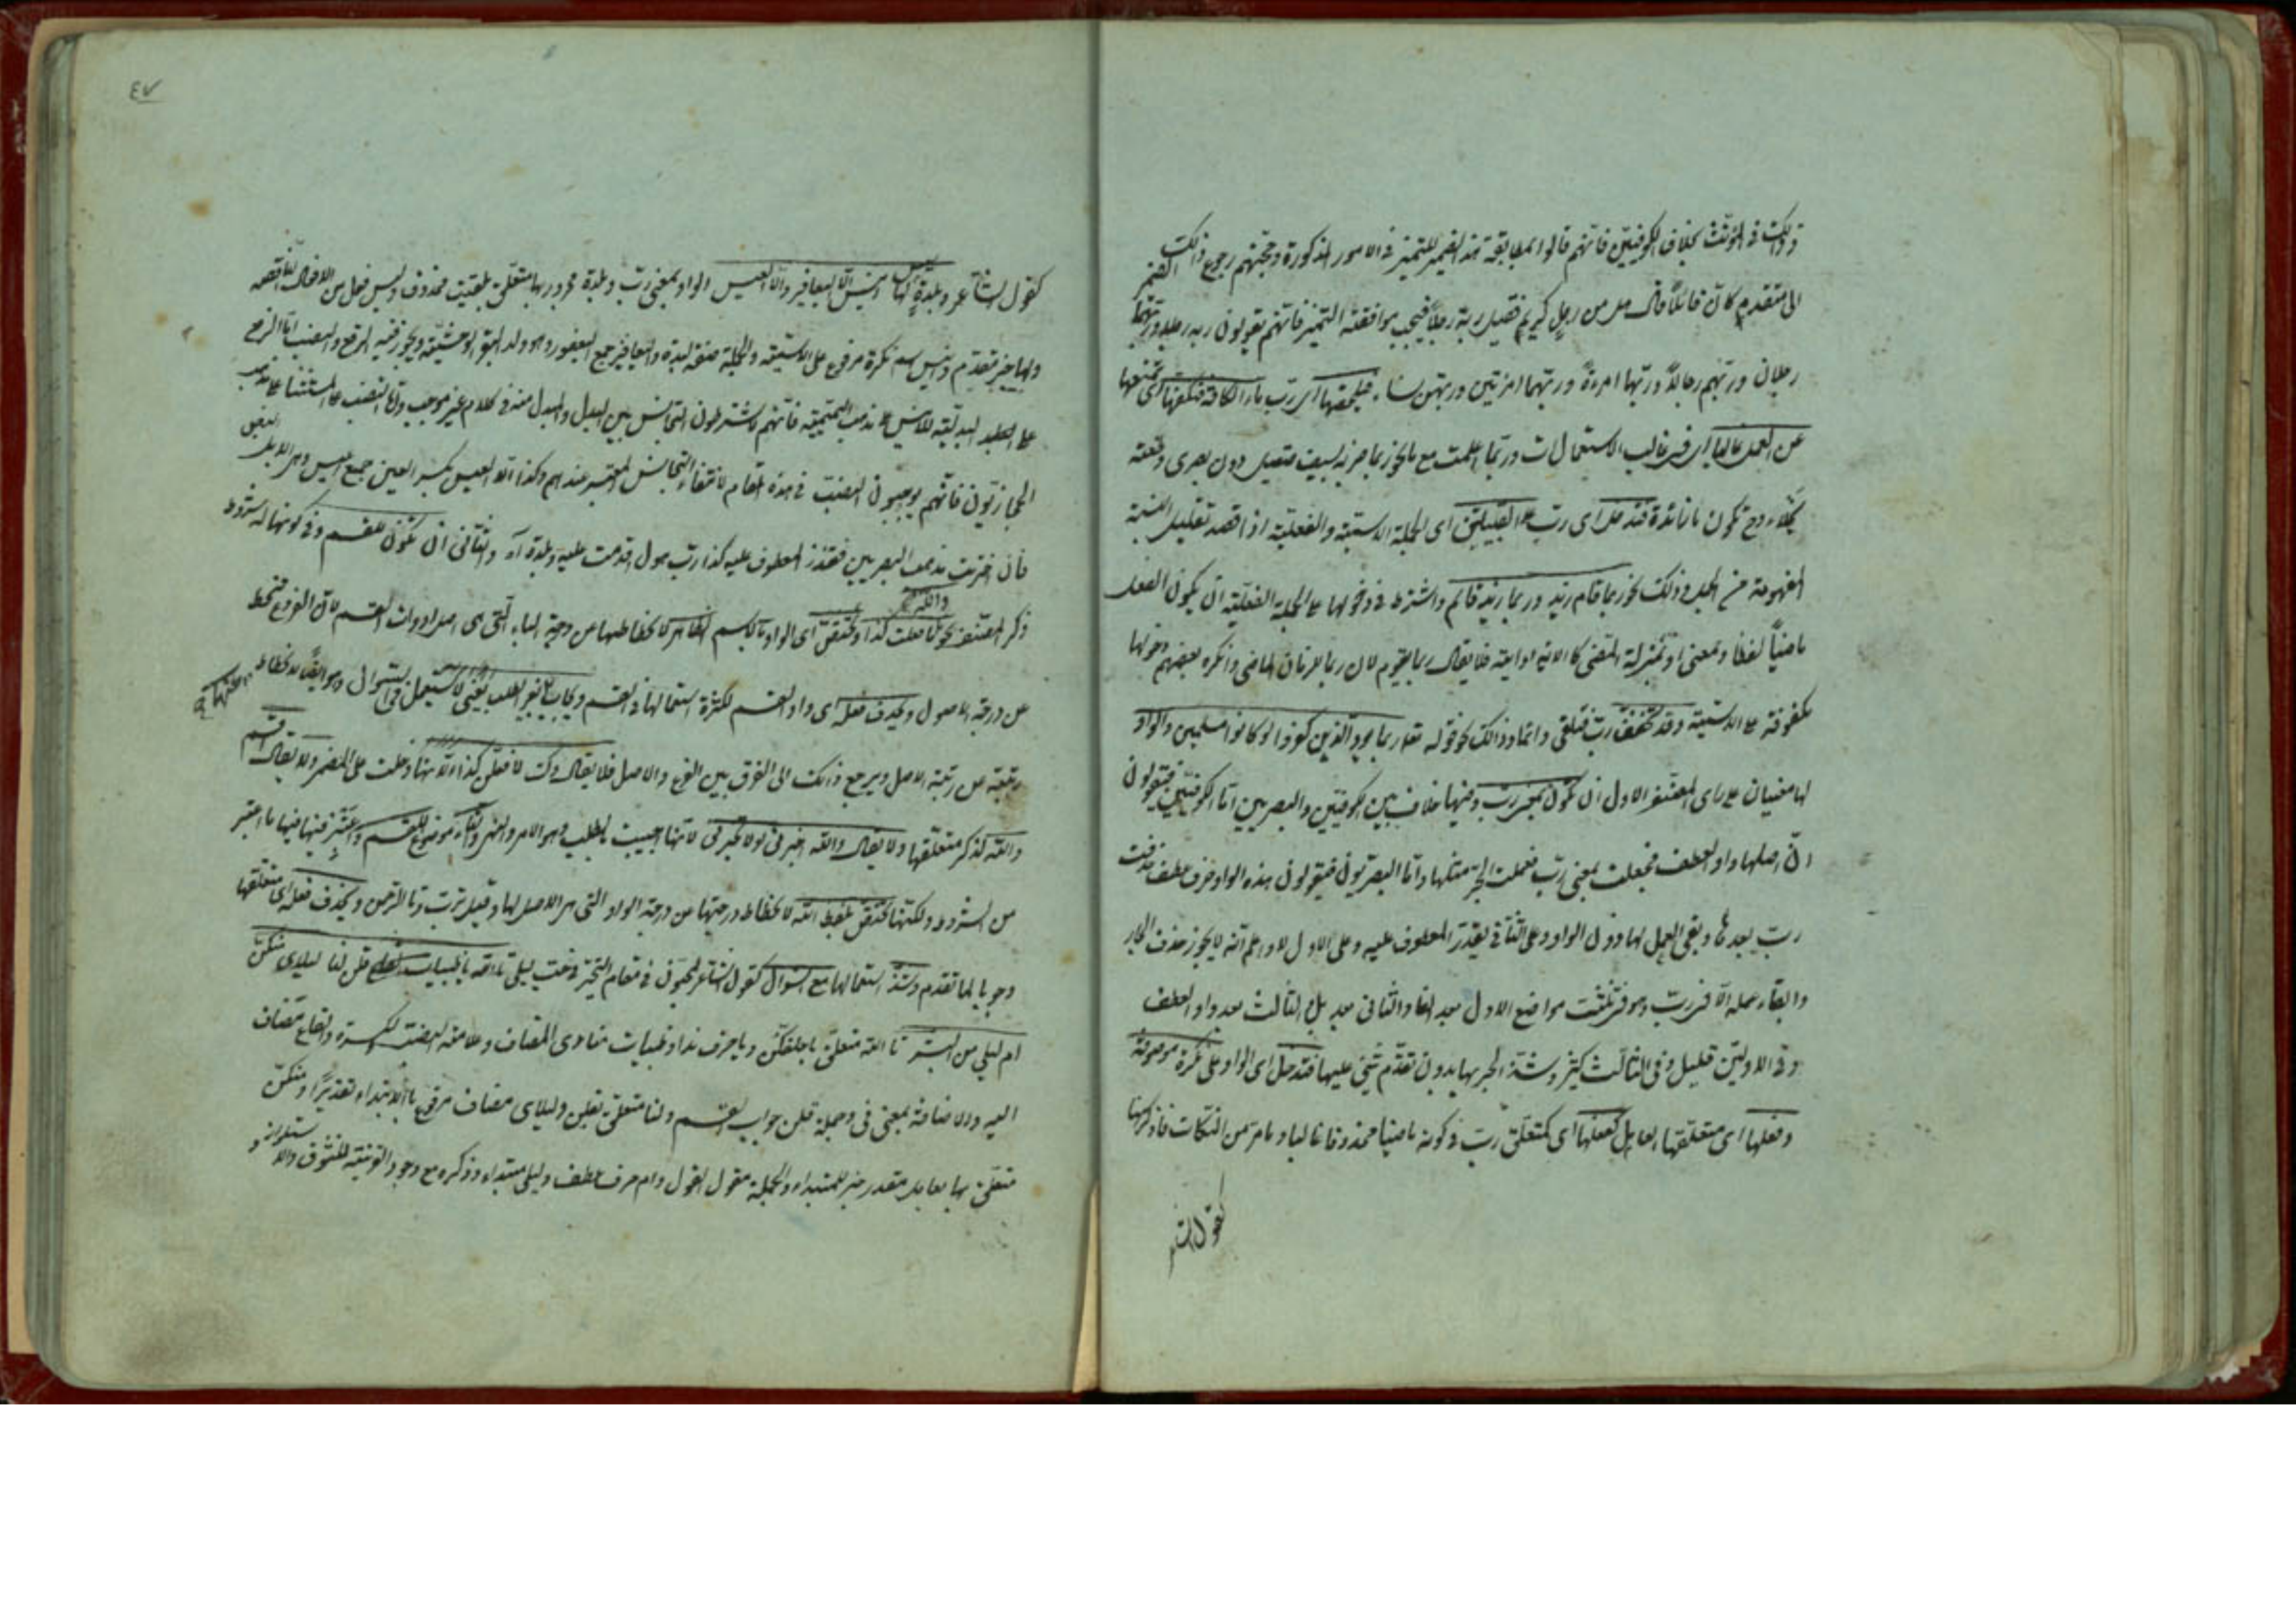 وذلك في المؤنث بخلاف الكوفيين فانهم قالوا بمطابقة هذا الضمير للتميز في الامور المذكورة وحجتهم رجوع ذلك الضمير
الى متقدم كان قائلا قال هل من رجل كريم فقيل ربه رجلا فيجب موافقته التميز فانهم يقولون ربه رجلا وربهما
رجلان وربهم رجالا وربها امرءة وربهما امرئتين وربهن نساء فيلحقها اى رب ماء الكافة فتكفها اى تمنعها
عن العمل غالبا اى فى غالب الاستعمالات وربما اعملت مع ما نحو ربما ضربة بسيف صقيل دون بصرى وطعنة
نجلاء وح تكون ما زائدة فتدخل اى رب على القبيلتين اى الجملة الاسمية والفعلية اذا قصد تقليل النسبة
المفهومة من الجملة وذلك نحو ربما قام زيد وربما زيد قائم واشترط فى دخولها على الجملة الفعلية ان يكون الفعل
ماضيا لفظا ومعنى او بمنزلة الماضى فلا يقال ربما يقوم لان ربما للزمان الماضى وانكره بعضهم دخولها
مكفوفة على الاسمية وقد تخفف رب نحو قوله تعا ربما يود الذين كفروا لو كانوا مسلمين والواو
لها معنيان على راى المصنف الاول ان تكون بمعنى رب وفيها خلاف بين الكوفيين والبصريين اما الكوفيين فيقولون
ان اصلها واو العطف فجعلت بمعنى رب فعملت الجر مثلها واما البصريون فيقولون هذه الواو حرف عطف حذفت
رب بعدها وبقى العمل لها دون الواو وعلى الثانى يقدر المعطوف عليه وعلى الاول لا واعلم انه لا يجوز حذف الجار
وابقاء عمله الا فى رب وهو فى ثلثة مواضع الاول بعد الفا والثانى بعد بل الثالث بعد واو العطف
وفى الاولين قليل وفى الثالث كثير وشذ الجر بها بدون تقدم شئ عليها فتدخل اى الواو على نكرة موصوفة
وفعلها اى متعلقها العامل كفعلها اى كمتعلق رب فى كونه ماضيا محذوفا غالبا وما مر من النكات فاذكرها
كقول الشاعر
٤٧
كقول الشاعر وبلدة ليس لها انيس الا اليعافير والا العيس الواو بمعنى رب وبلدة مجرور بها متعلق بلقيت محذوف وليس فعل من الافعال الناقصة
ولها خبر مقدم وانيس نكرة مرفوع على الاسمية والجملة صفة لبلدة واليعافير جمع اليعفور وهو ولد البقر الوحشية ويجوز فيه الرفع والنصب اما الرفع
على البدلية للانيس على مذهب التميمية فانهم لا يشترطون التجانس بين البدل والمبدل منه فى كلام غير موجب واما النصب على الاستثناء على مذهب
الحجازيون فانهم يوجبون النصب فى هذه المقام لانتفاء التجانس المعتبر عندهم وكذا الا العيس بكسر العين جمع اعيس وهى الابل
فان اخترت مذهب البصريين فقدر المعطوف عليه كذا رب هول اقدمت عليه وبلدة آه والثانى ان تكون للقسم وفى كونها له شروط
ذكر المصنف نحو والله ما فعلت كذا وتختص اى الواو بالاسم الظاهر لانحطاطها عن درجة الباء التى هى اصل ادوات القسم لان الفروع تنحط
عن درجة الاصول ويحذف فعله اى واو القسم لكثرة استعمالها فى القسم ويجاب بغير الطلب يعنى لا تستعمل فى السؤال وهو ايضا لانحطاط
رتبته عن رتبة الاصل ويرجع ذلك الى الفرق بين الفرع والاصل فلا يقال وك لافعلن كذا لانها دخلت على المضمر ولا يقال اقسم
والله لذكر متعلقها ولا يقال والله اخبرنى او لا تخبرنى لانها اجيبت بالطلب وهو الامر والنهى والتاء موضوع للقسم واعتبر فيها ما اعتبر
من الشروط ولكنها تختص بلفظ الله لانحطاط درجتها عن درجة الواو التى هى الاصل لها وقيل ترب وتا الرحمن ويحذف فعله اى متعلقها
وجوبا لما تقدم وشذ استعمالها مع السؤال كقول الشاعر المجنون فى مقام التحير فى حب ليلى تالله يا ظبيات القاع قلن لنا ليلاى منكن
ام ليلى من البشر تا الله متعلق باحلفكن ويا حرف ندا وظبيات منادى المضاف وعلامة النصب الكسرة والقاع مضاف
اليه والاضافة بمعنى فى وجملة قلن جواب القسم ولنا متعلق بقلن وليلاى مضاف مرفوع بالابتداء تقديرا ومنكن
متعلق بها بعامل مقدر خبر للمبتداء والجملة مقول القول وام حرف عطف وليلى مبتداء وذكره مع وجود القرينة للشوق والاستلذاذ